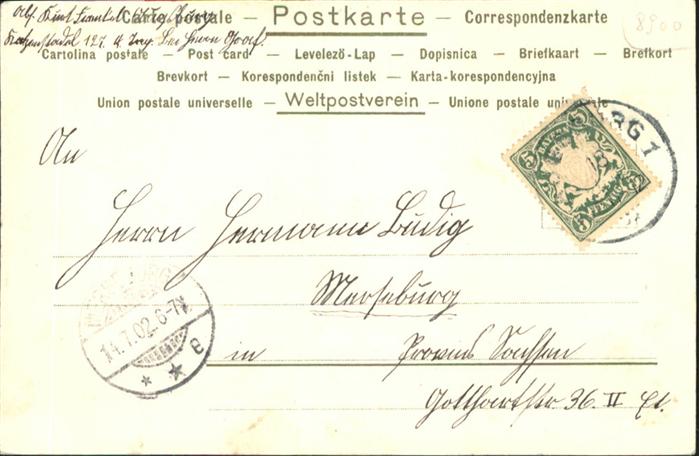 Carte postale – Postkarte – Correspondenzkarte
8900
Cartolina postale – Post card – Levelező-Lap – Dopisnica – Briefkaart – Brefkort
Brevkort – Korespondenčni listek – Karta-korespondencyjna
Union postale universelle – Weltpostverein – Unione postale universale
An
Herrn Hermann Ludig
Merseburg
in Provinz Sachsen
Gotthartstr. 36. II Et.
5 5
BAYERN
PFENNIG
5 5
RG 1
14.7.02. 6-7N.
e